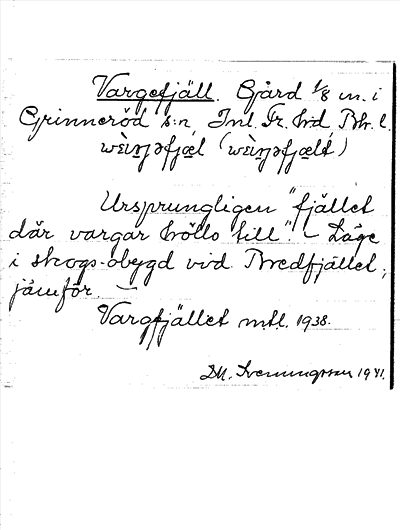 Vargefjäll. Gård 1/8 m. i
Grinneröd s:n, Inl. Fr. hd, Bh. l.
Ursprungligen "fjället
där vargar höllo till". – Läge
i skogs-obygd vid Bredfjället,
jämför –
Vargfjället mtl. 1938.
D.H. Svenungsson 1941.